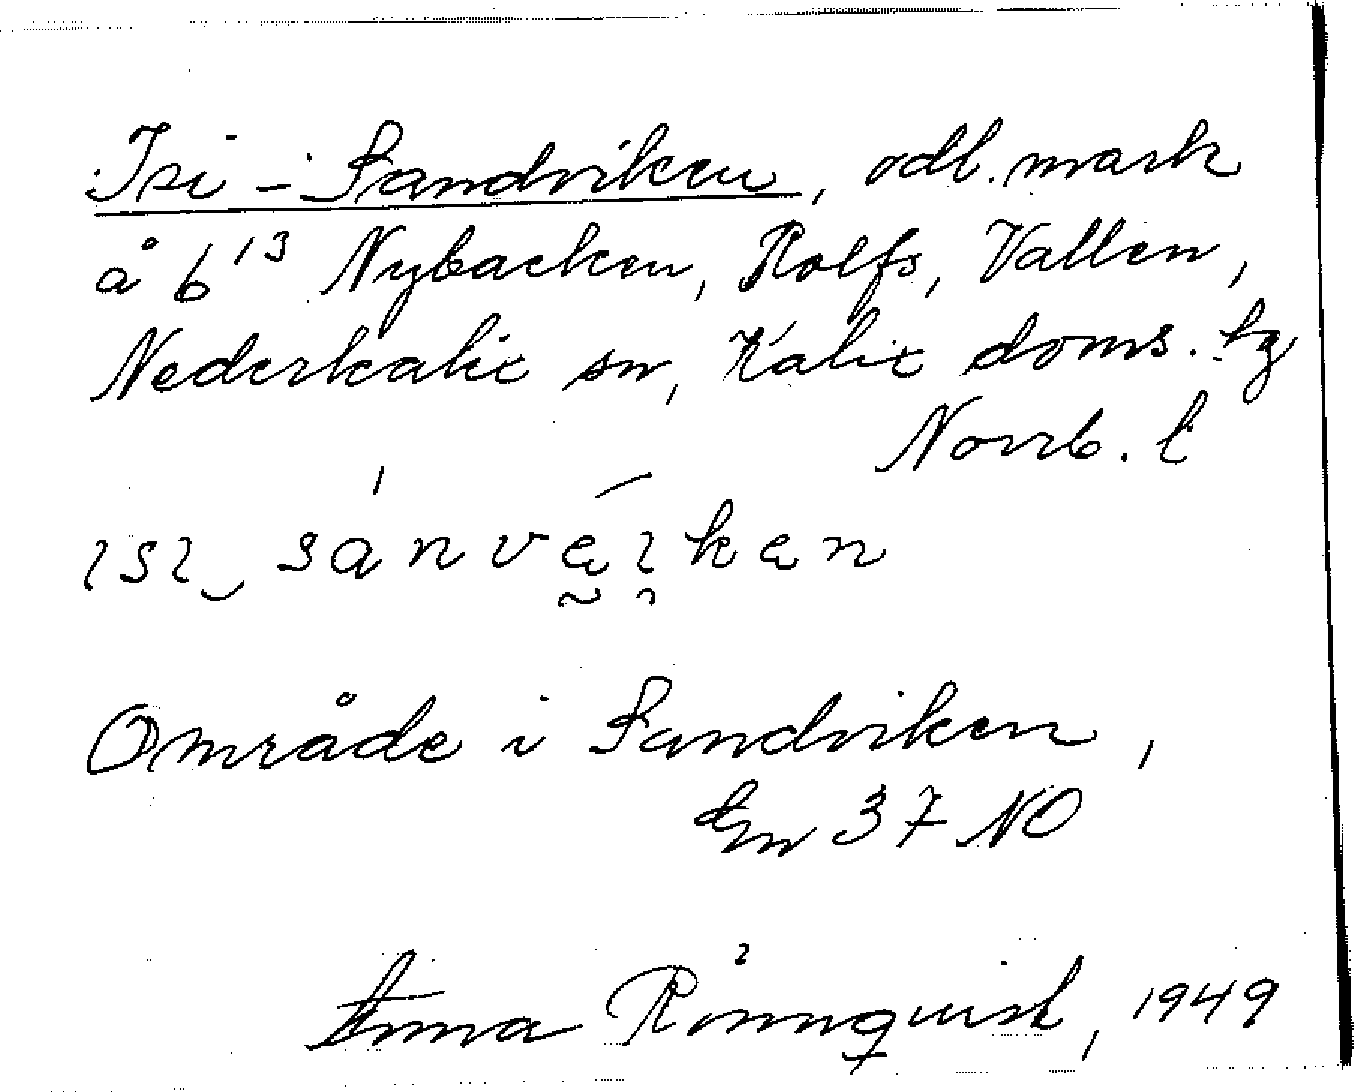 Isi-Sandviken, odl. mark
å b¹³ Nybacken, Rolfs, Vallen,
Nederkalix sn, Kalix doms. tg
Norrb. l
ɩsɩ‿sánvä́ɩken
Område i Sandviken,
Em 37 NO
Anna Rönnquist, 1949